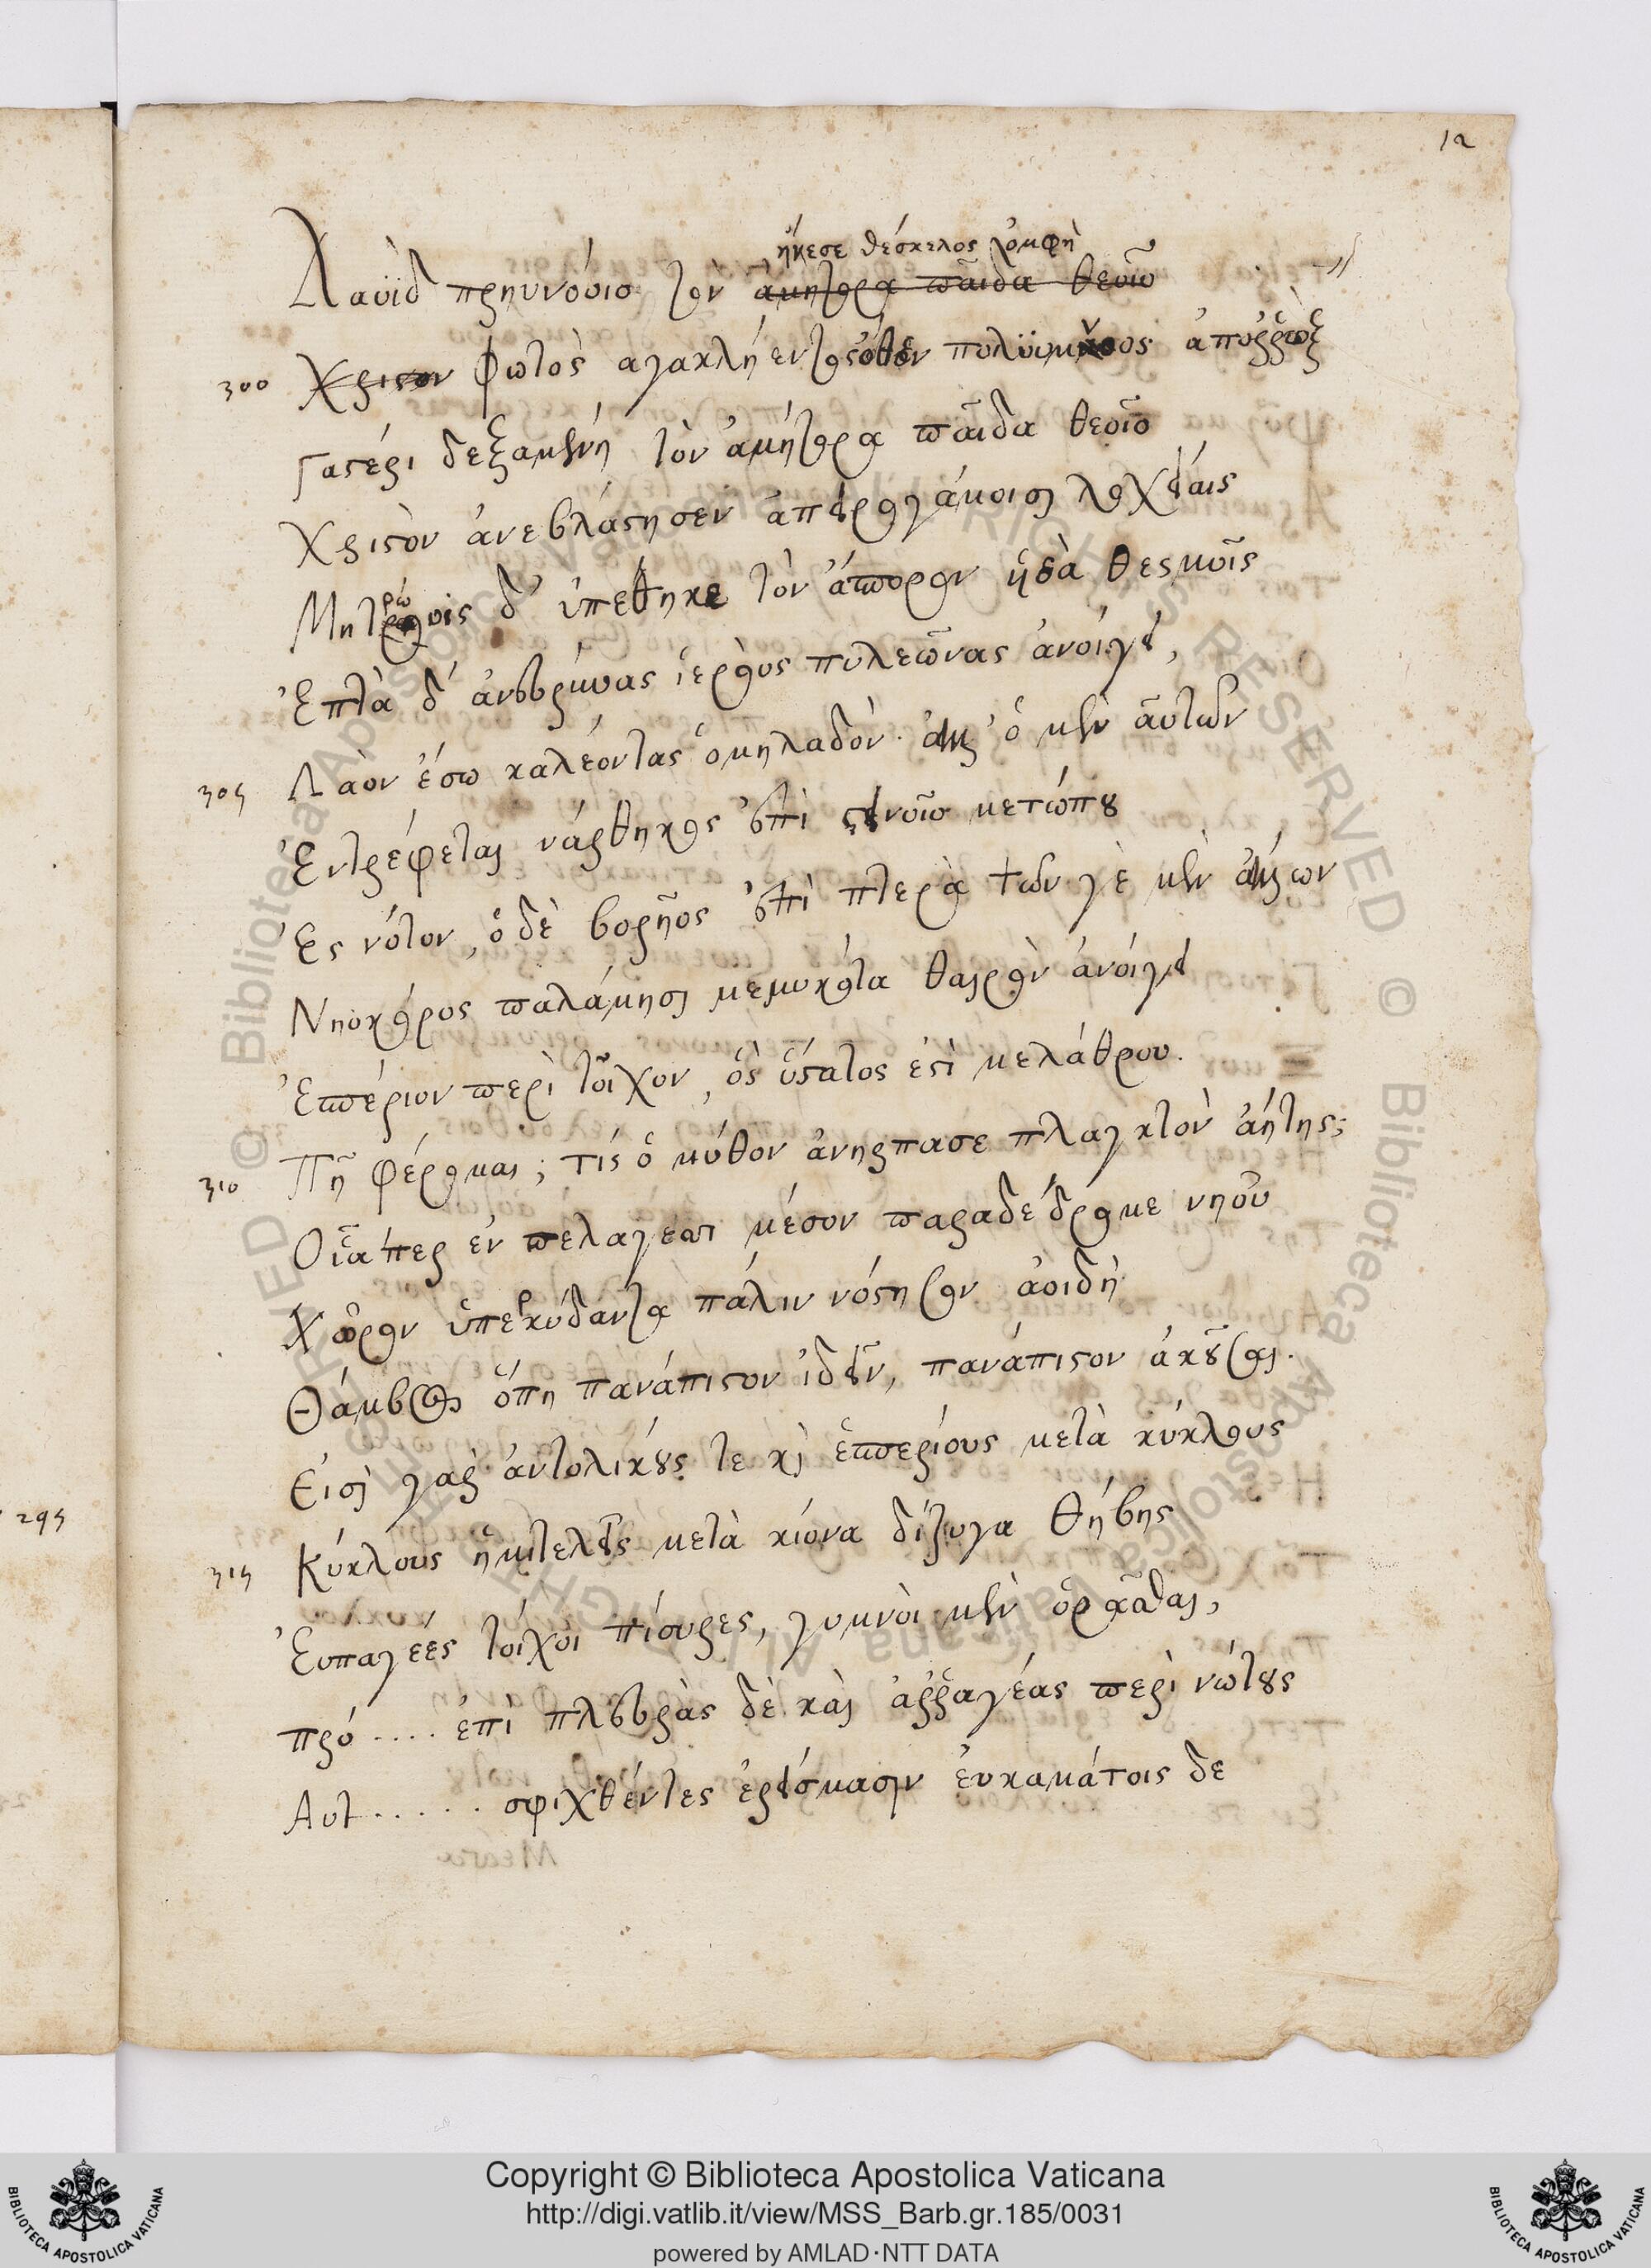 12
ἤκεσε θέσκελος ὀμφὴ
Δαυϊδ πρηυνόοιο τὸν ἀμήτορα παῖδα θεοῖο
300 Χριστον Φωτὸς αγακλήεντος ὅθεν πολύϊμνος ἀποῤῥὼξ
Γαστέρι δεξαμένη τὸν ἀμήτορα παῖδα θεοῖο
Χριστὸν ἀνεβλάστησεν ἀπειρογάμοισι λοχείαις
Μητρώοις δ' ὑπεθηκε τὸν ἄσπορον θεσμοῖς
Ἑπτὰ δ' ἀνευρύνας ἱερὸυς πυλεῶνας ἀνοίγει,
305 Λαον ἔσω καλέοντας ὁμηλαδὸν· ἀλλ' ὁ μὲν αὐτῶν
Ἐντρέφεται νάρθηκος ἐπὶ στεινοῖο μετώπου
Ἐς νότον, ὁ δὲ βορῆος ἐπὶ πτερὰ τῶν γὲ μὲν ἄλλων
Νηοκόρος παλάμησι μεμυκότα θαιρὸν ἀνοίγει
Ἑσπέριον περὶ τοῖχον, ὃς ὕστατος ἐστὶ μελάθρου.
310 Πῆ φέρομαι; τίς ὁ μύθον ἀνηρπασε πλαγκτὸν ἀήτης;
Οἷά περ ἐν πελαγεσσι μέσον παραδέδρομε νηοῦ
Χῶρον ὑπερκύδαντα πάλιν νόστησον ἀοιδὴ
Θάμβος ὅπη πανάπιστον ἰδεῖν, πανάπιστον ἀκοῦσαι.
Εἰσὶ γὰρ ἀντολικούς τε καὶ ἑσπερίους μετὰ κύκλους
295
315 Κύκλους ἡμιτελεῖς μετὰ κίονα δίζυγα Θήβης
Ἐυπαγεές τοίχοι πίσυρες, γυμνὸι μὲν ὁρᾶσθαι,
πρό .... ἐπὶ πλευρὰς δὲ καὶ ἀῤῥαγέας περὶ νώτους
Αυτ ...... σφιχθέντες ἐρείσμασιν ἐυκαμάτοις δε
Copyright © Biblioteca Apostolica Vaticana
http://digi.vatlib.it/view/MSS_Barb.gr.185/0031
powered by AMLAD·NTT DATA